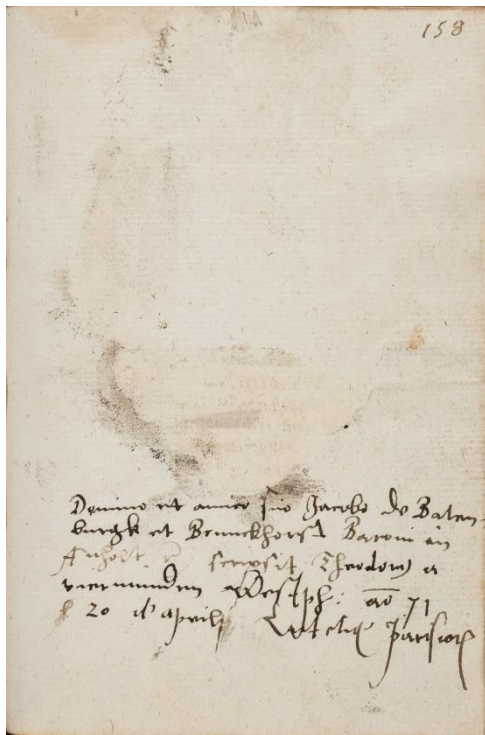 158
Domino et amico suo Jacobo de Baten-
burgk et Brunckhorst Baroni in
Anholt scripsit Theodorus a
viermundem Westph: ao 71
20 d'aprill Lutetie parisior